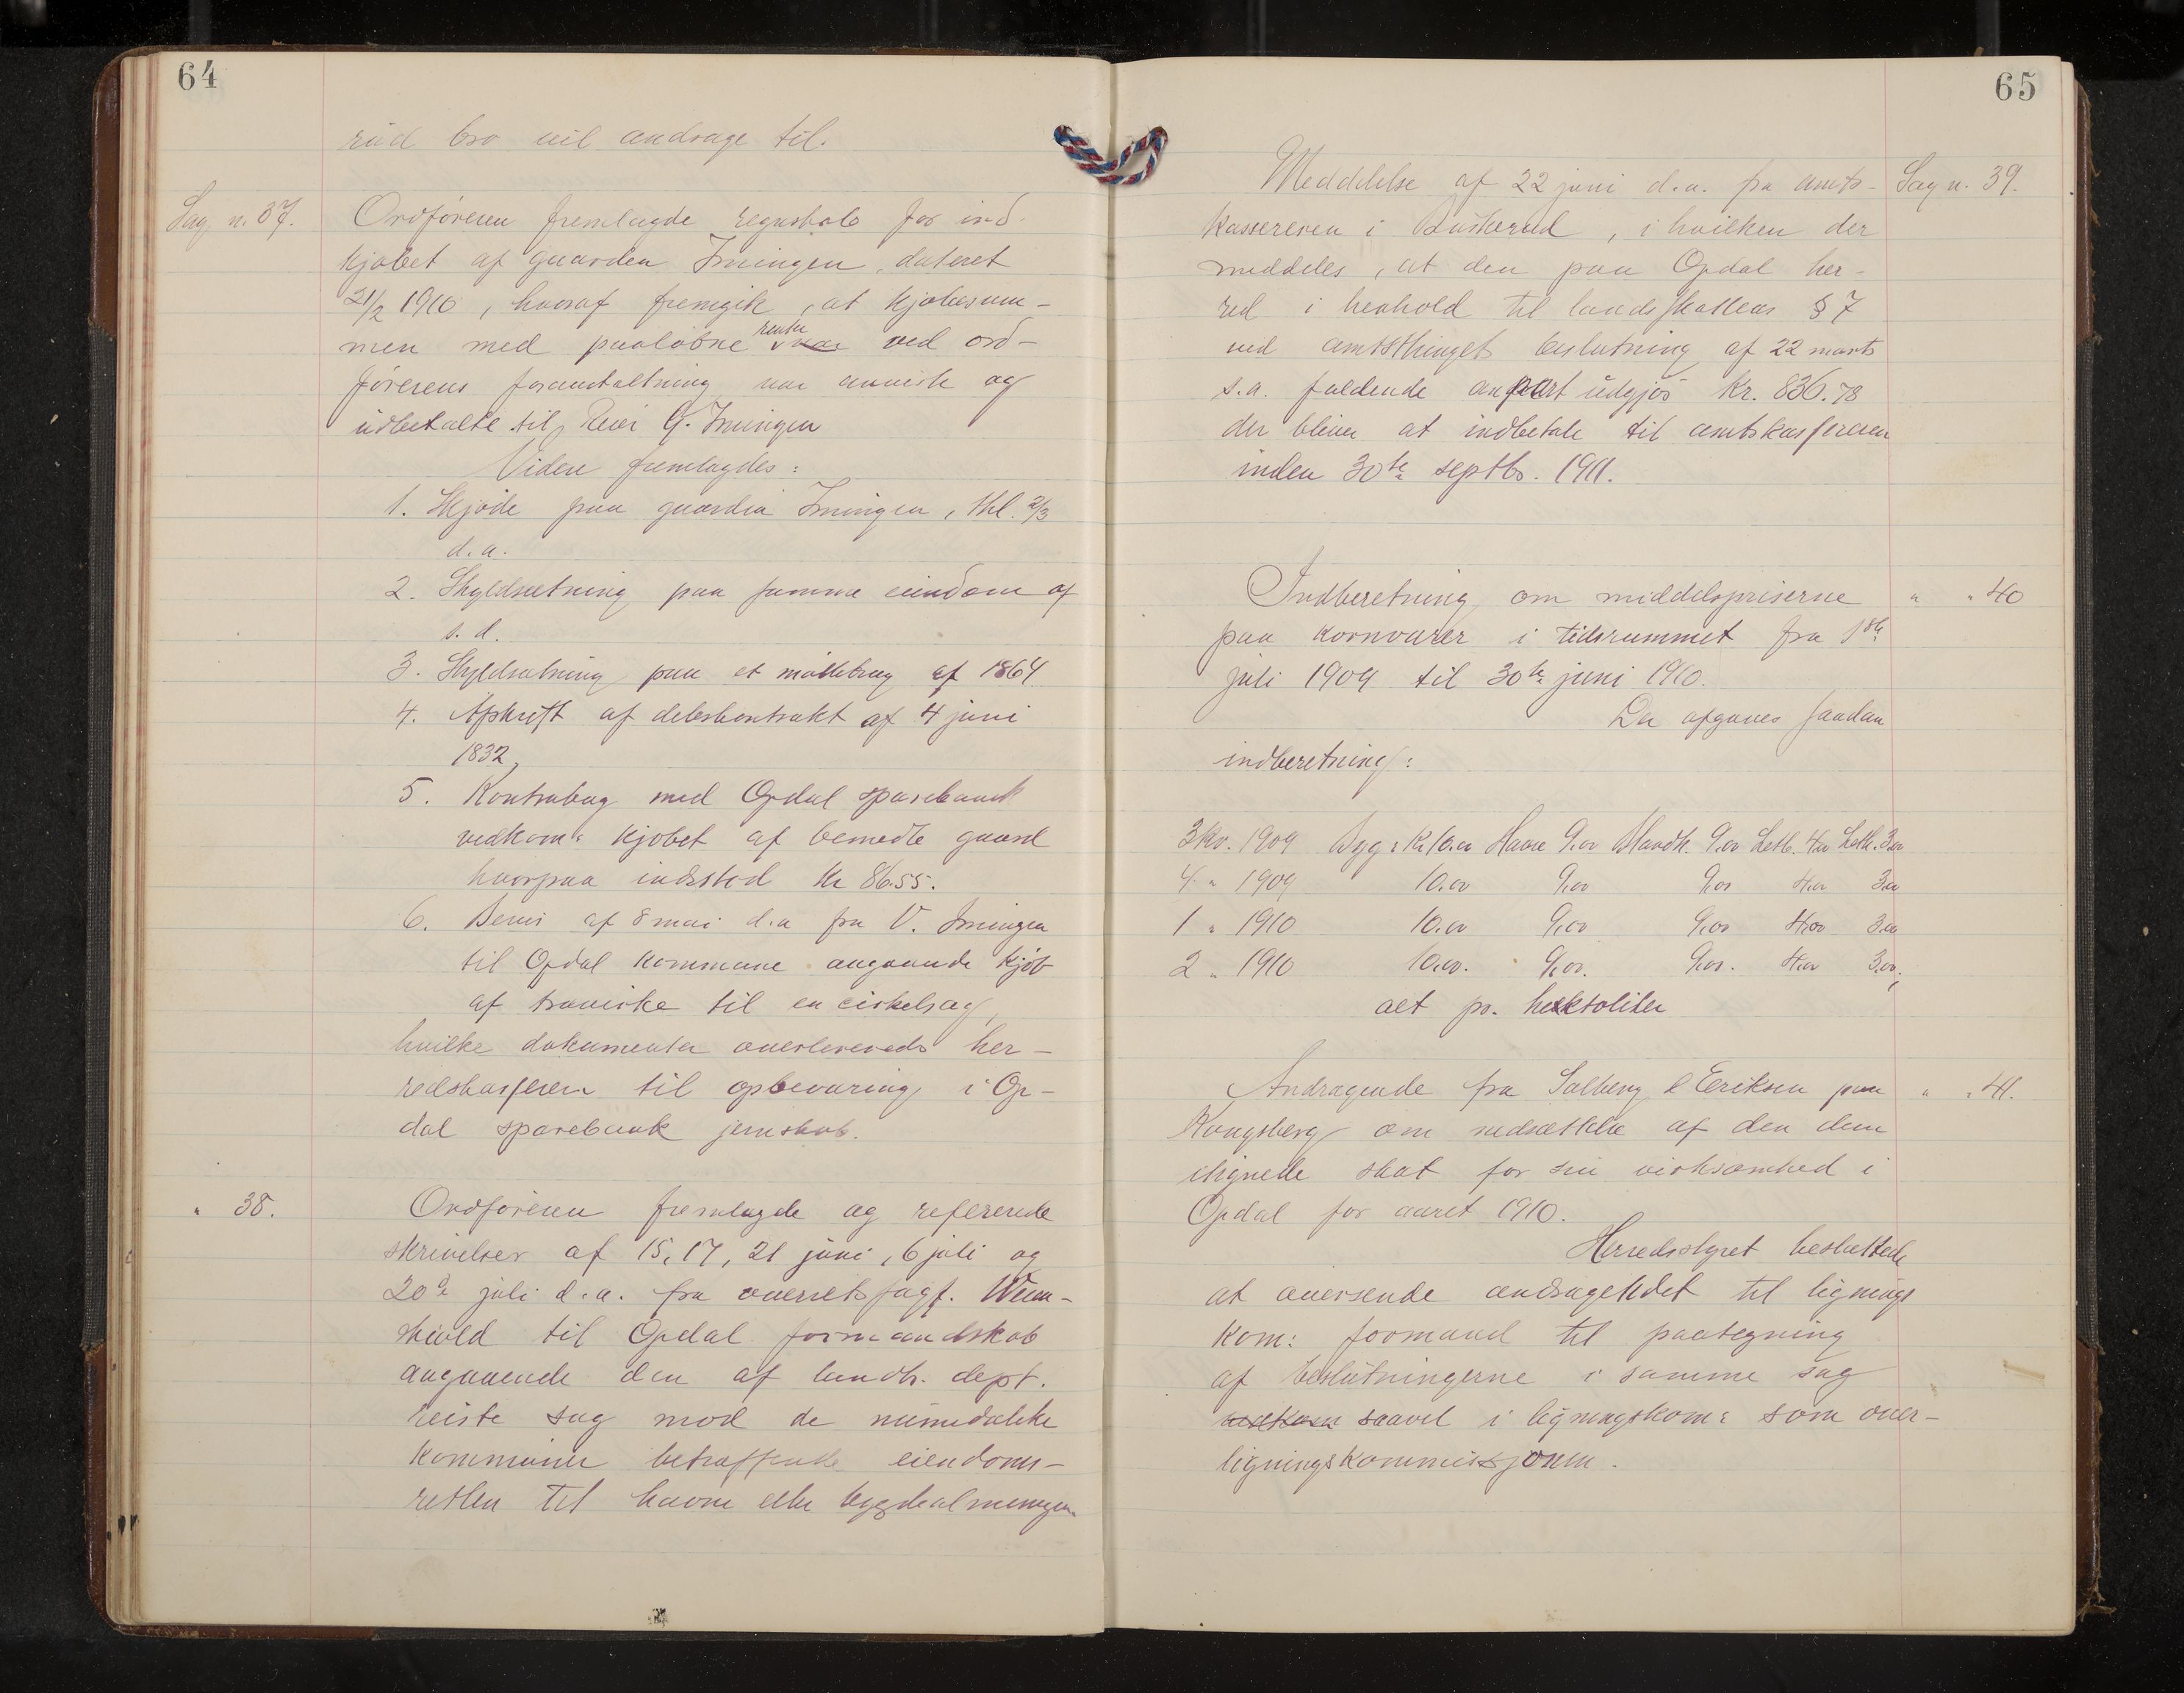 64
rud bro vil andrage til.
Sag n. 37.
Ordføreren fremlagde regnskab for ind-
kjøbet af gaarden Imingen, dateret
21/2 1910, hvoraf fremgik, at kjøbesum-
men med paaløbne renter var ved ord-
førerens foranstaltning var anviste og
udbetalte til G. Imingen
Videre fremlagdes:
1. Skjøde paa gaarden Imingen, thl. 2/3
d.a.
2. Skyldsætning paa samme eiendom af
s. d.
3. Skyldsætning paa et møllebrug af 1864
4. Afskrift af deleskontrakt af 4 juni
1832,
5. Kontrabog med Opdal sparebank
vedkom: kjøbet af bemedte gaard
hvorpaa indestod Kr 8655.
6. Bevis af 8 mai d.a fra V. Imingen
til Opdal kommune angaaende kjøb
af trævirke til en cirkelsag,
hvilke dokumenter overleveredes her-
redskasseren til opbevaring i Op-
dal sparebank jernskab.
" 38.
Ordføreren fremlagde og refererede
skrivelser af 15, 17, 21 juni, 6 juli og
20de juli d.a. fra overretssagf. Wenn-
skiold til Opdal formandskab
angaaende den af landb. dept.
reiste sag mod de numedalske
kommuner betræffende eiendoms-
retten til havne eller bygdealmeninger.
65
Sag n. 39.
Meddelelse af 22 juni d.a. fra amts-
kassereren i Buskerud, i hvilken der
meddeles, at den paa Opdal her-
red i henhold til landsskatlens § 7
ved amtsthingets beslutning af 22 marts
s.a. faldende anpart udgjør Kr. 836.78
der bliver at indbetale til amtskassereren
inden 30te septbr. 1911.
" " 40
Indberetning om middelspriserne
paa kornvarer i tidsrummet fra 1ste
juli 1909 til 30te juni 1910.
Der afgaves saadan
indberetning:
3 kv. 1909 Byg: Kr 10.00 Havre 9.00 Blandk. 9.00 Letb. 4.00 Leth. 3.00
4 " 1909 10.00 9.00 9.00 4.00 3.00
1 " 1910 10.00 9.00 9.00 4.00 3.00
2 " 1910 10.00. 9.00. 9.00. 4.00 3.00.,
alt pr. hektoliter
" " 41.
Andragende fra Solberg & Eriksen paa
Kongsberg om nedsættelse af den dem
ilignede skat for sin virksomhed i
Opdal for aaret 1910.
Herredsstyret besluttede
at oversende andragendet til lignings
kom: formand til paategning
af beslutningerne i samme sag
vedkom saavel i ligningskom: som over-
ligningskommissjonen.